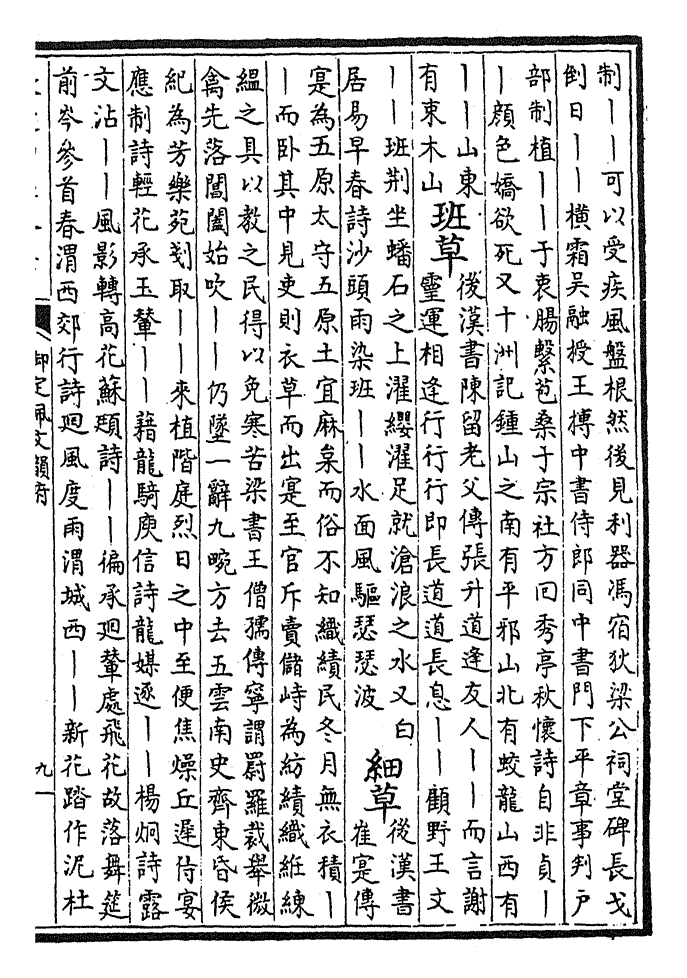 制丨丨可以受疾風盤根然後見利器馮宿狄梁公祠堂碑長戈
倒日丨丨橫霜吳融授王摶中書侍郎同中書門下平章事判户
部制植丨丨于衷腸繫苞桑于宗社方回秀亭秋懷詩自非貞丨
丨顔色嬌欲死又十洲記鍾山之南有平邪山北有蛟龍山西有
丨丨山東
有東木山
班草
後漢書陳留老父傳張升道逢友人丨丨而言謝
靈運相逢行行行即長道道長息丨丨顧野王文
丨丨班荆坐蟠石之上濯纓濯足就滄浪之水又白
居易早春詩沙頭雨染班丨丨水面風驅瑟瑟波
細草
後漢書
崔寔傳
寔為五原太守五原土宜麻枲而俗不知織績民冬月無衣積丨
丨而卧其中見吏則衣草而出寔至官斥賣儲峙為紡績織絍練
縕之具以教之民得以免寒苦梁書王僧孺傳寧謂罻羅裁舉微
禽先落閶闔始吹丨丨仍墜一辭九畹方去五雲南史齊東昏侯
紀為芳樂苑剗取丨丨來植階庭烈日之中至便焦燥丘遲侍宴
應制詩輕花承玉輦丨丨藉龍騎庾信詩龍媒逐丨丨楊炯詩露
文沾丨丨風影轉高花蘇頲詩丨丨徧承廻輦處飛花故落舞筵
前岑參首春渭西郊行詩廻風度雨渭城西丨丨新花踏作泥杜
御定佩文韻府
九